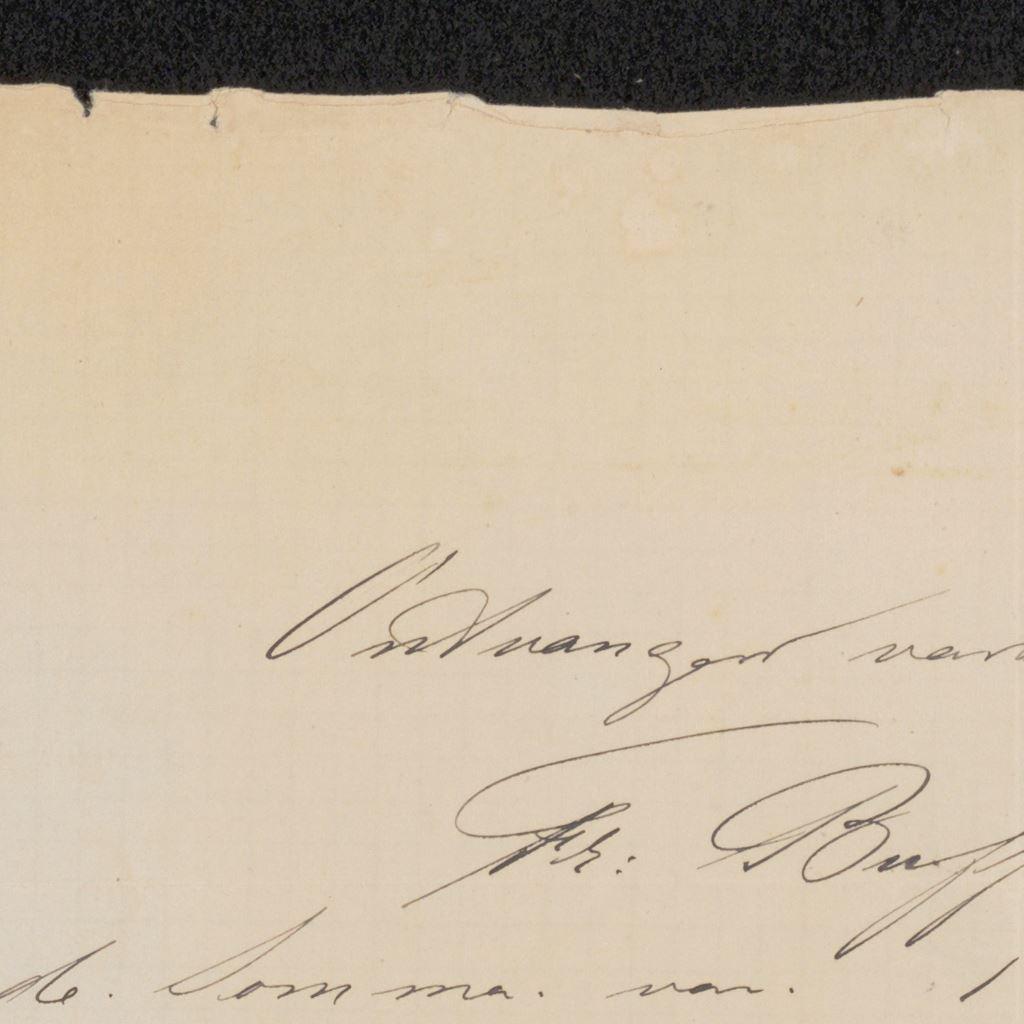 Ontvangen van
Fr: Buff
de Somma van